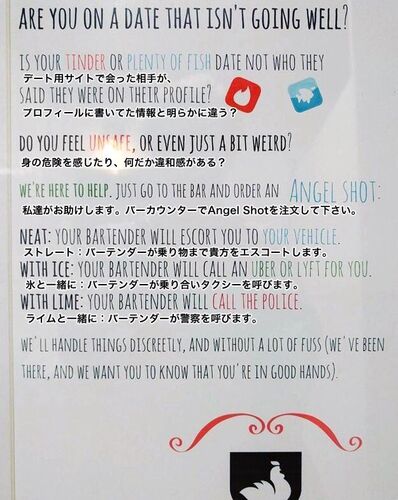 ARE YOU ON A DATE THAT ISN'T GOING WELL?
IS YOUR TINDER OR PLENTY OF FISH DATE NOT WHO THEY
デート用サイトで会った相手が、
SAID THEY WERE ON THEIR PROFILE?
プロフィールに書いてた情報と明らかに違う?
DO YOU FEEL UNSAFE, OR EVEN JUST A BIT WEIRD?
身の危険を感じたり、何だか違和感がある?
WE'RE HERE TO HELP. JUST GO TO THE BAR AND ORDER AN ANGEL SHOT:
私達がお助けします。バーカウンターでAngel Shotを注文して下さい。
NEAT: YOUR BARTENDER WILL ESCORT YOU TO YOUR VEHICLE.
ストレート:バーテンダーが乗り物まで貴方をエスコートします。
WITH ICE: YOUR BARTENDER WILL CALL AN UBER OR LYFT FOR YOU.
氷と一緒に:バーテンダーが乗り合いタクシーを呼びます。
WITH LIME: YOUR BARTENDER WILL CALL THE POLICE.
ライムと一緒に:バーテンダーが警察を呼びます。
WE'LL HANDLE THINGS DISCREETLY, AND WITHOUT A LOT OF FUSS (WE'VE BEEN
THERE, AND WE WANT YOU TO KNOW THAT YOU'RE IN GOOD HANDS).